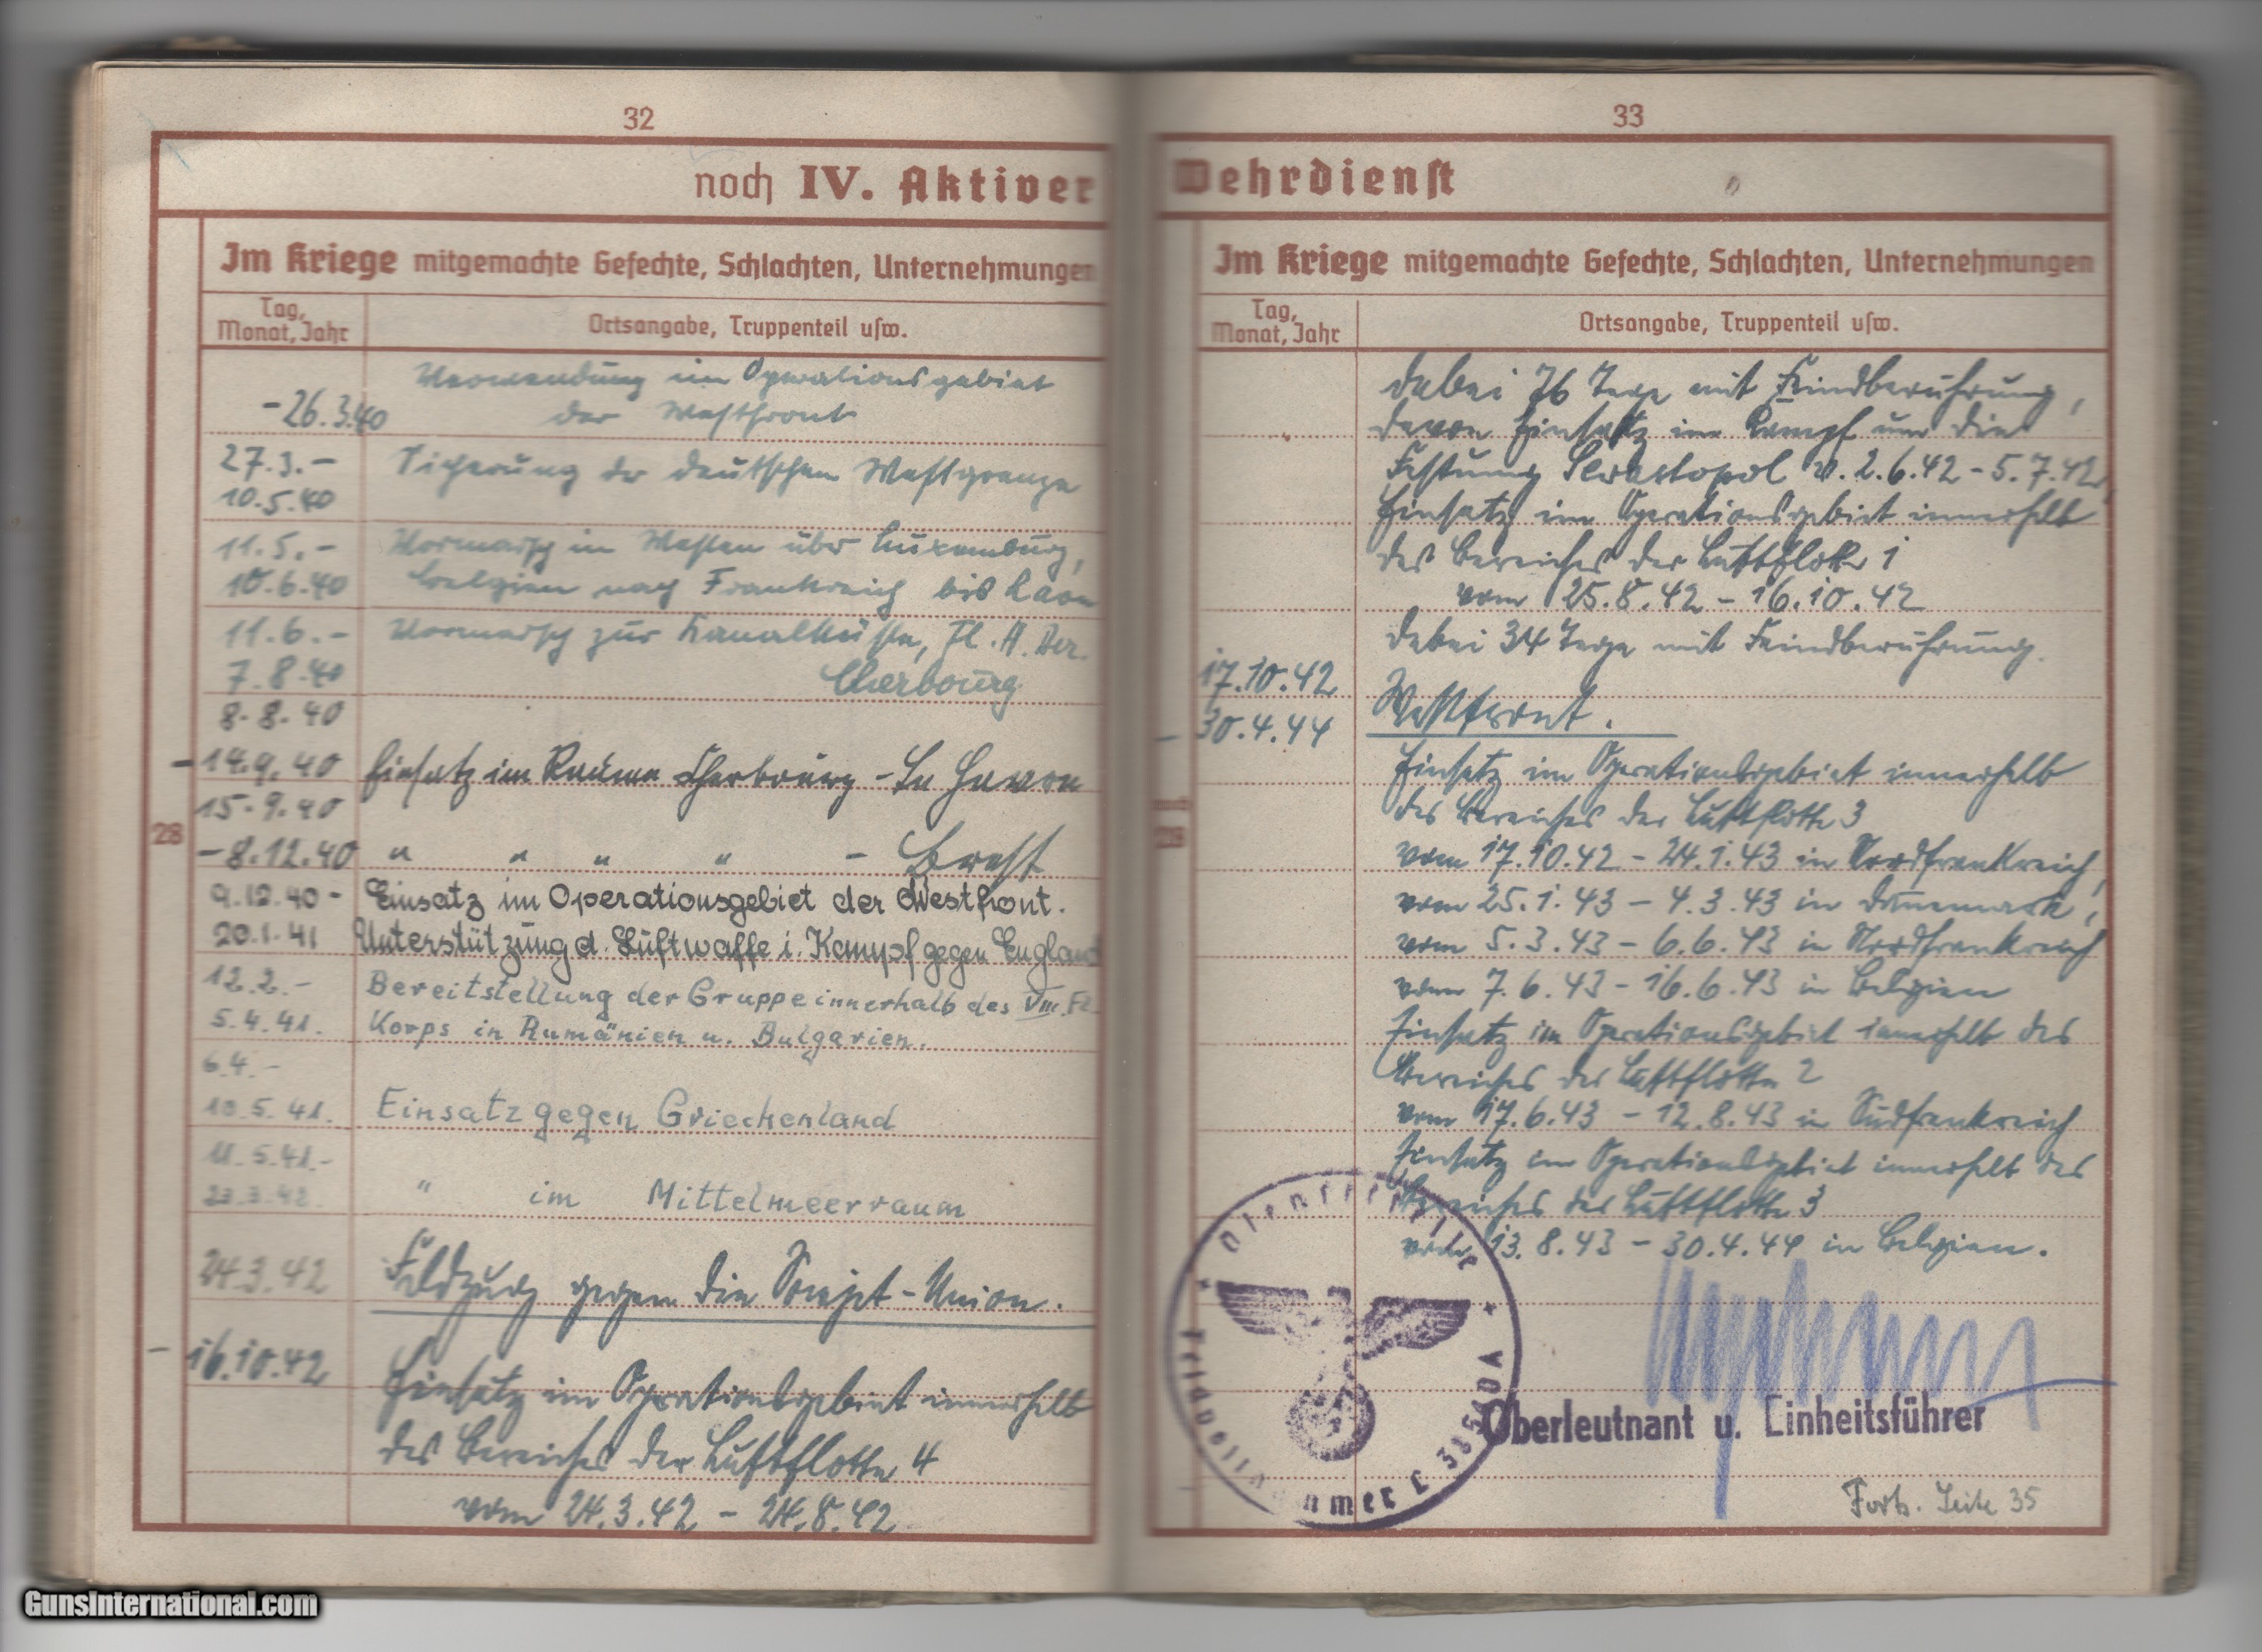 32
noch IV. Aktiver
Im Kriege mitgemachte Gefechte, Schlachten, Unternehmungen
Tag,
Monat, Jahr
Ortsangabe, Truppenteil usw.
Verwendung im Operationsgebiet
- 26.3.40 der Westfront
27.3. - Sicherung der deutschen Westgrenze
10.5.40
11.5. - Vormarsch im Westen über Luxemburg,
10.6.40 Belgien nach Frankreich bis Laon
11.6. - Vormarsch zur Kanalküste, Fl. H.
7.8.40 Cherbourg
8.8.40
- 14.9.40 Einsatz im Raume Cherbourg - Le Havre
15.9.40
28
- 8.12.40 " " " " - Brest
9.12.40 - Einsatz im Operationsgebiet der Westfront.
20.1.41 Unterstützung d. Luftwaffe i. Kampf gegen England
12.2. - Bereitstellung der Gruppe innerhalb des VIII. Fl.
5.4.41. Korps in Rumänien u. Bulgarien.
6.4. -
10.5.41. Einsatz gegen Griechenland
11.5.41. -
23.3.42. " im Mittelmeerraum
24.3.42 Feldzug gegen die Sowjet-Union.
- 16.10.42
Einsatz im Operationsgebiet innerhalb
des Bereiches der Luftflotte 4
vom 24.3.42 - 24.8.42
33
Wehrdienst
Im Kriege mitgemachte Gefechte, Schlachten, Unternehmungen
Tag,
Monat, Jahr
Ortsangabe, Truppenteil usw.
dabei 76 Tage mit Feindberührung,
davon Einsatz im Kampf um die
Festung Sewastopol v. 2.6.42 - 5.7.42,
Einsatz im Operationsgebiet innerhalb
des Bereiches der Luftflotte 1
vom 25.8.42 - 16.10.42
dabei 34 Tage mit Feindberührung.
17.10.42
- 30.4.44 Westfront.
Einsatz im Operationsgebiet innerhalb
des Bereiches der Luftflotte 3
noch
28
vom 17.10.42 - 24.1.43 in Nordfrankreich,
vom 25.1.43 - 4.3.43 in Dänemark,
vom 5.3.43 - 6.6.43 in Nordfrankreich
vom 7.6.43 - 16.6.43 in Belgien
Einsatz im Operationsgebiet innerhalb des
Bereiches der Luftflotte 2
vom 17.6.43 - 12.8.43 in Südfrankreich
Einsatz im Operationsgebiet innerhalb des
Bereiches der Luftflotte 3
vom 13.8.43 - 30.4.44 in Belgien.
Dienststelle
Feldpostnummer L
Oberleutnant u. Einheitsführer
Forts. Seite 35
GunsInternational.com